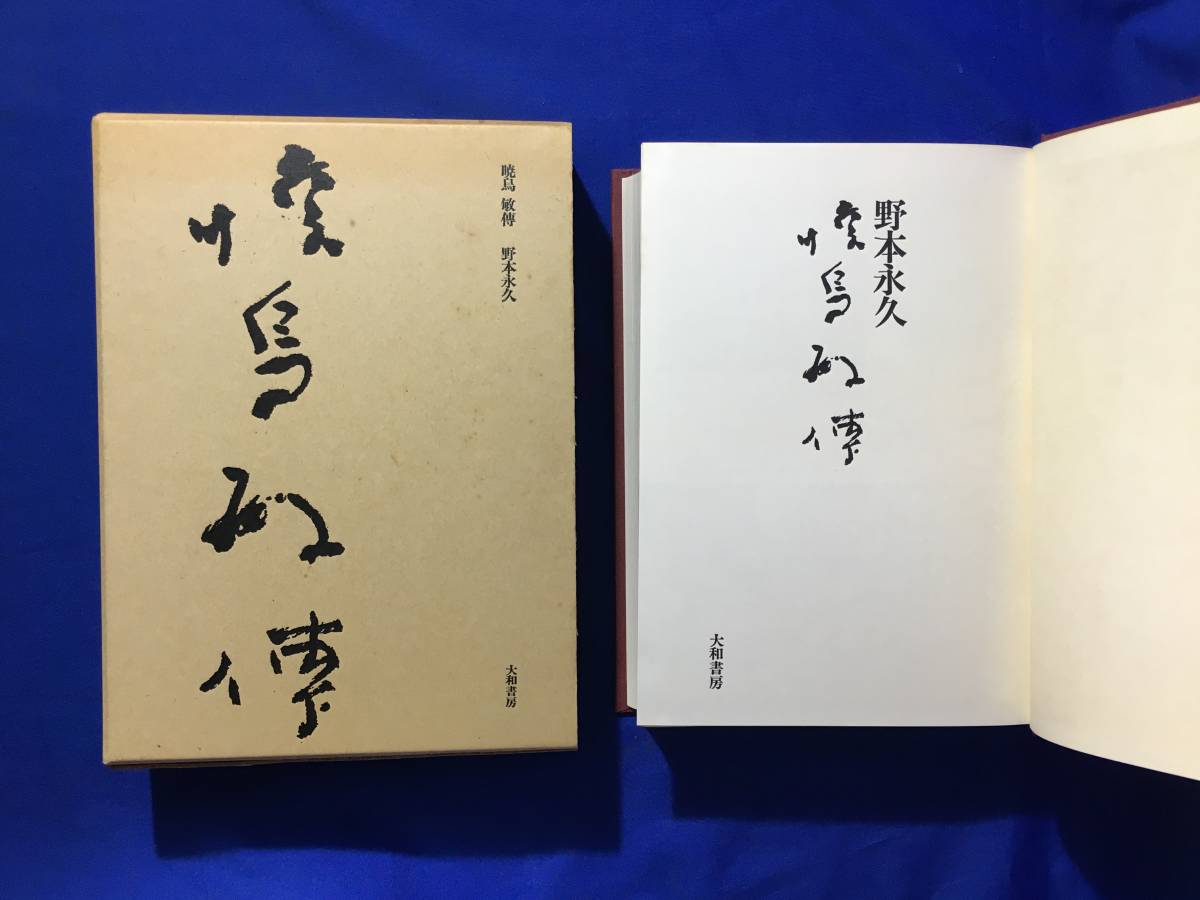 暁烏 敏傳 野本永久
暁烏敏傳
大和書房
野本永久
暁烏敏傳
大和書房